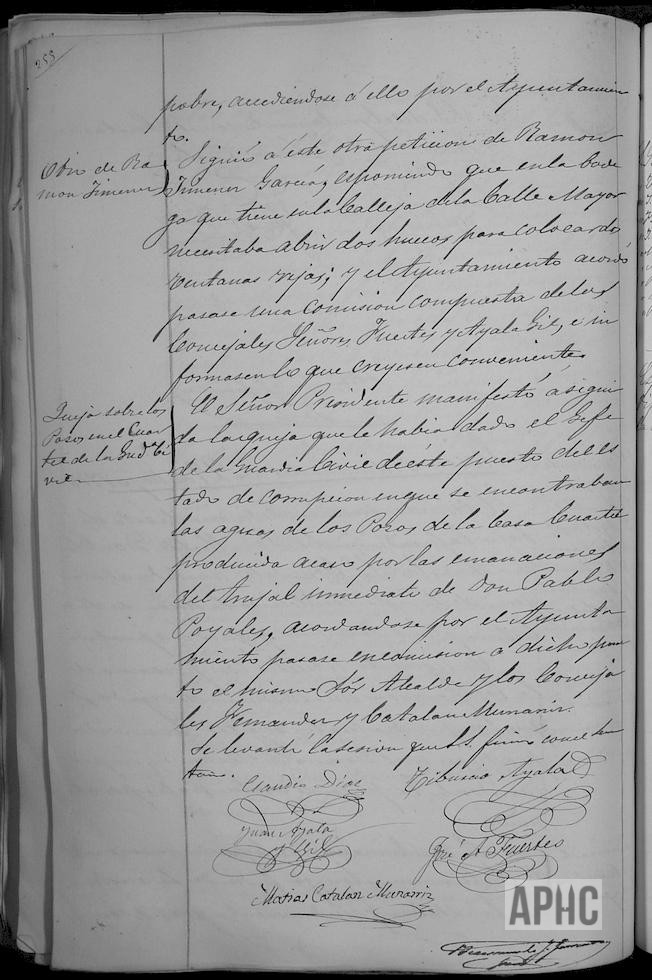 255
pobre, accediendose á ello por el Ayuntamien
to.
Otro de Ra
mon Jimenez
Siguió á éste otra peticion de Ramon
Jimenez Garcia, esponiendo que en la Bode
ga que tiene en la Calleja de la Calle Mayor
necesitaba abrir dos huecos para colocar dos
ventanas rejas; y el Ayuntamiento acordó
pasase una comision compuesta de los
Concejales Señores Fuertes y Ayala Gil, é in
formasen lo que creyesen conveniente.
Queja sobre los
Pozos en el Cuar
tel de la Gud.ª Ci
vil
El Señor Presidente manifestó á segui
da la queja que le habia dado el Gefe
de la Guardia Civil de este puesto del es
tado de corrupcion en que se encontraban
las aguas de los Pozos de la Casa Cuartel
producida acaso por las emanaciones
del trujal inmediato de Don Pablo
Poyales, acordandose por el Ayunta
miento pasase en comision a dicho pun
to el mismo Sór Alcalde y los Conceja
les Fernandez y Catalan Munarriz.
Se levantó la sesion que S.S. firmó con el
Claudio Diaz
Tiburcio Ayala
Juan Ayala
y Gil
José A Fuertes
Matias Catalan Munarriz
APHC